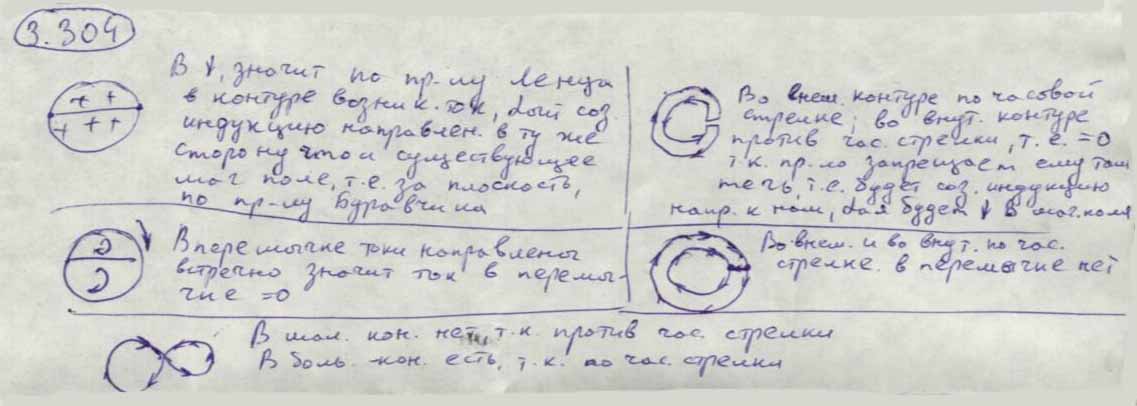 3.304
В ↓, значит по пр-лу Ленца
в контуре возник. ток, кот. соз.
индукцию направлен. в ту же
сторону что и существующее
маг поле, т.е. за плоскость,
по пр-лу Буравчика
Во внеш. контуре по часовой
стрелке; во внут. контуре
против час. стрелки, т.е. =0
т.к. пр-ло запрещает ему там
течь, т.е. будет соз. индукцию
напр. к нам, кая будет ↓ В маг. поля
В перемычке токи направлены
встречно значит ток в перемы-
чке =0
Во внеш. и во внут. по час.
стрелке. в перемычке нет
В мал. кон. нет, т.к. против час. стрелки
В боль. кон. есть, т.к. по час. стрелки